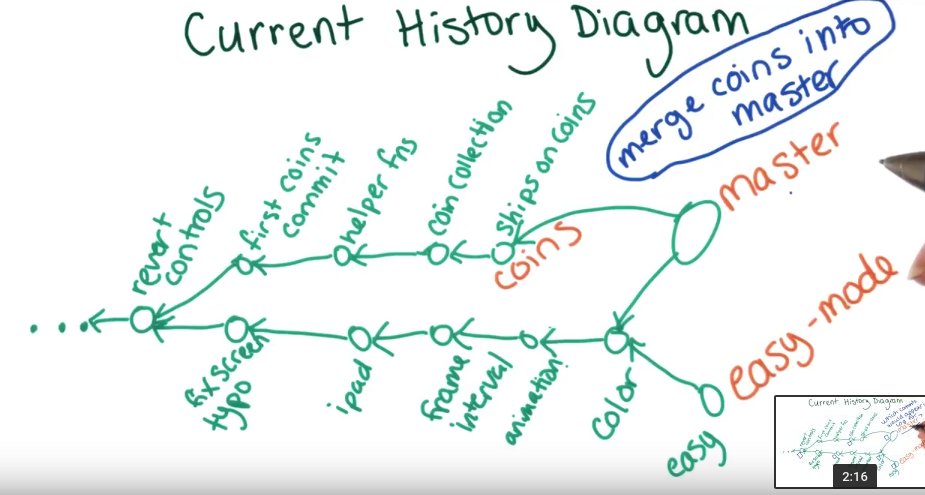 Current History Diagram
merge coins into
master
master
revert
controls
first coins
commit
helper fns
coin collection
ships on coins
coins
...
fix screen
typo
ipad
frame
interval
animation
color
easy
easy-mode
Current History Diagram
2:16